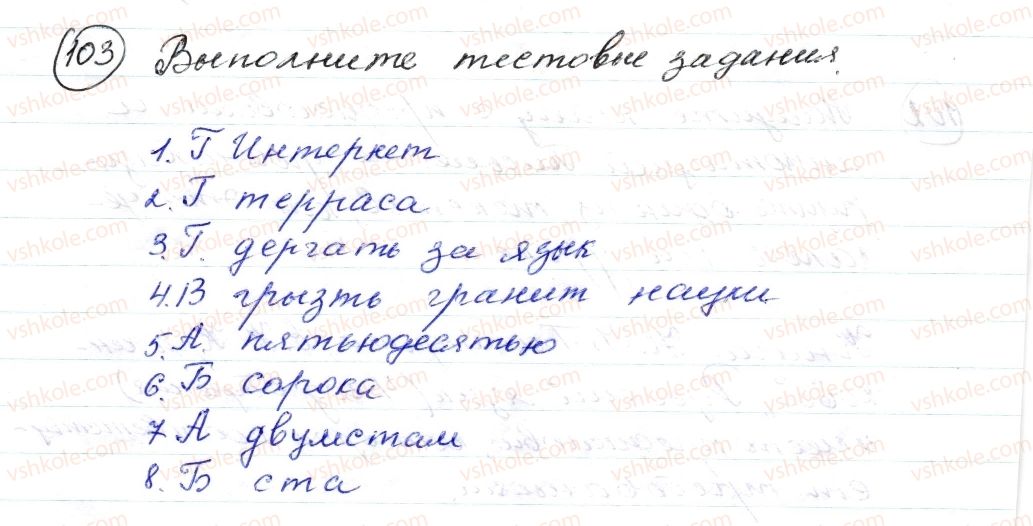 103 Выполните тестовые задания.
1. Г Интернет
2. Г терраса
3. Г. дергать за язык
4. В грызть гранит науки
5. А. пятьюдесятью
6. Б сорока
7 А двумстам
8. Б ста